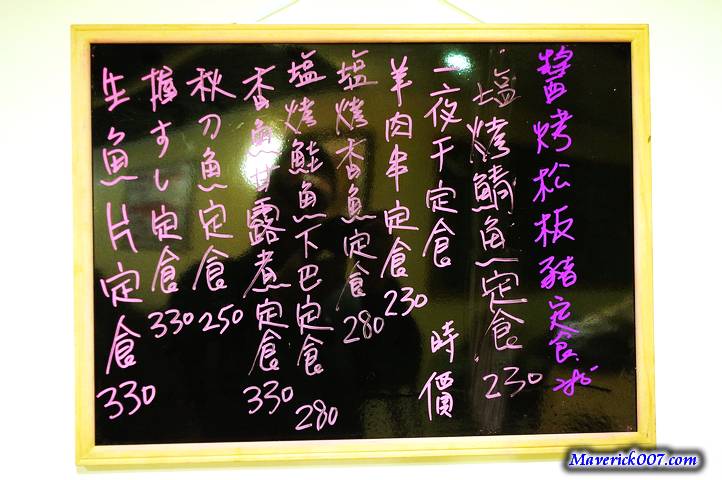 醬烤松板豬定食 285
塩烤鯖魚定食 230
一夜干定食 時價
羊肉串定食 230
塩烤香魚定食 280
塩烤鮭魚下巴定食 280
香魚甘露煮定食 330
秋刀魚定食 250
握すし定食 330
生魚片定食 330
Maverick007.com